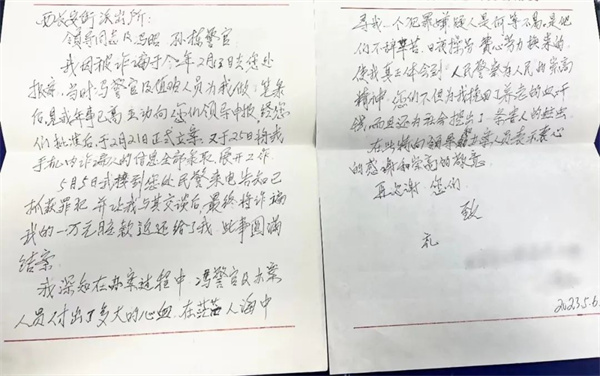 西长安街派出所:
领导同志及冯昭 孙栋警官
我因被诈骗于今年2月13日去您处
报案,当时冯警官及值班人员为我做了笔录
但是我年事已高主动向您们领导申报经您
们批准后,于2月21日正式立案。又于25日将我
手机内诈骗人的信息全部录取 展开工作
5月5日我接到您处民警来电告知已
抓获罪犯 并让我与其交谈后,最终将诈骗
我的一万元赃款返还给了我 此事圆满
结案。
我深知在办案过程中 冯警官及办案
人员付出了多大的心血.在茫茫人海中
寻找一个犯罪嫌疑人是何等不易,是他
们不辞辛苦、日夜操劳 费心劳力换来的
使我真正体会到 人民警察为人民的崇高
精神,您们不但为我挽回了养老的
钱,而且还为社会挖出了 害人的蛀虫
在此特向领导及办案人员表示衷心
的感谢和崇高的敬意
再次谢 您们
致
礼
2023.5.6.